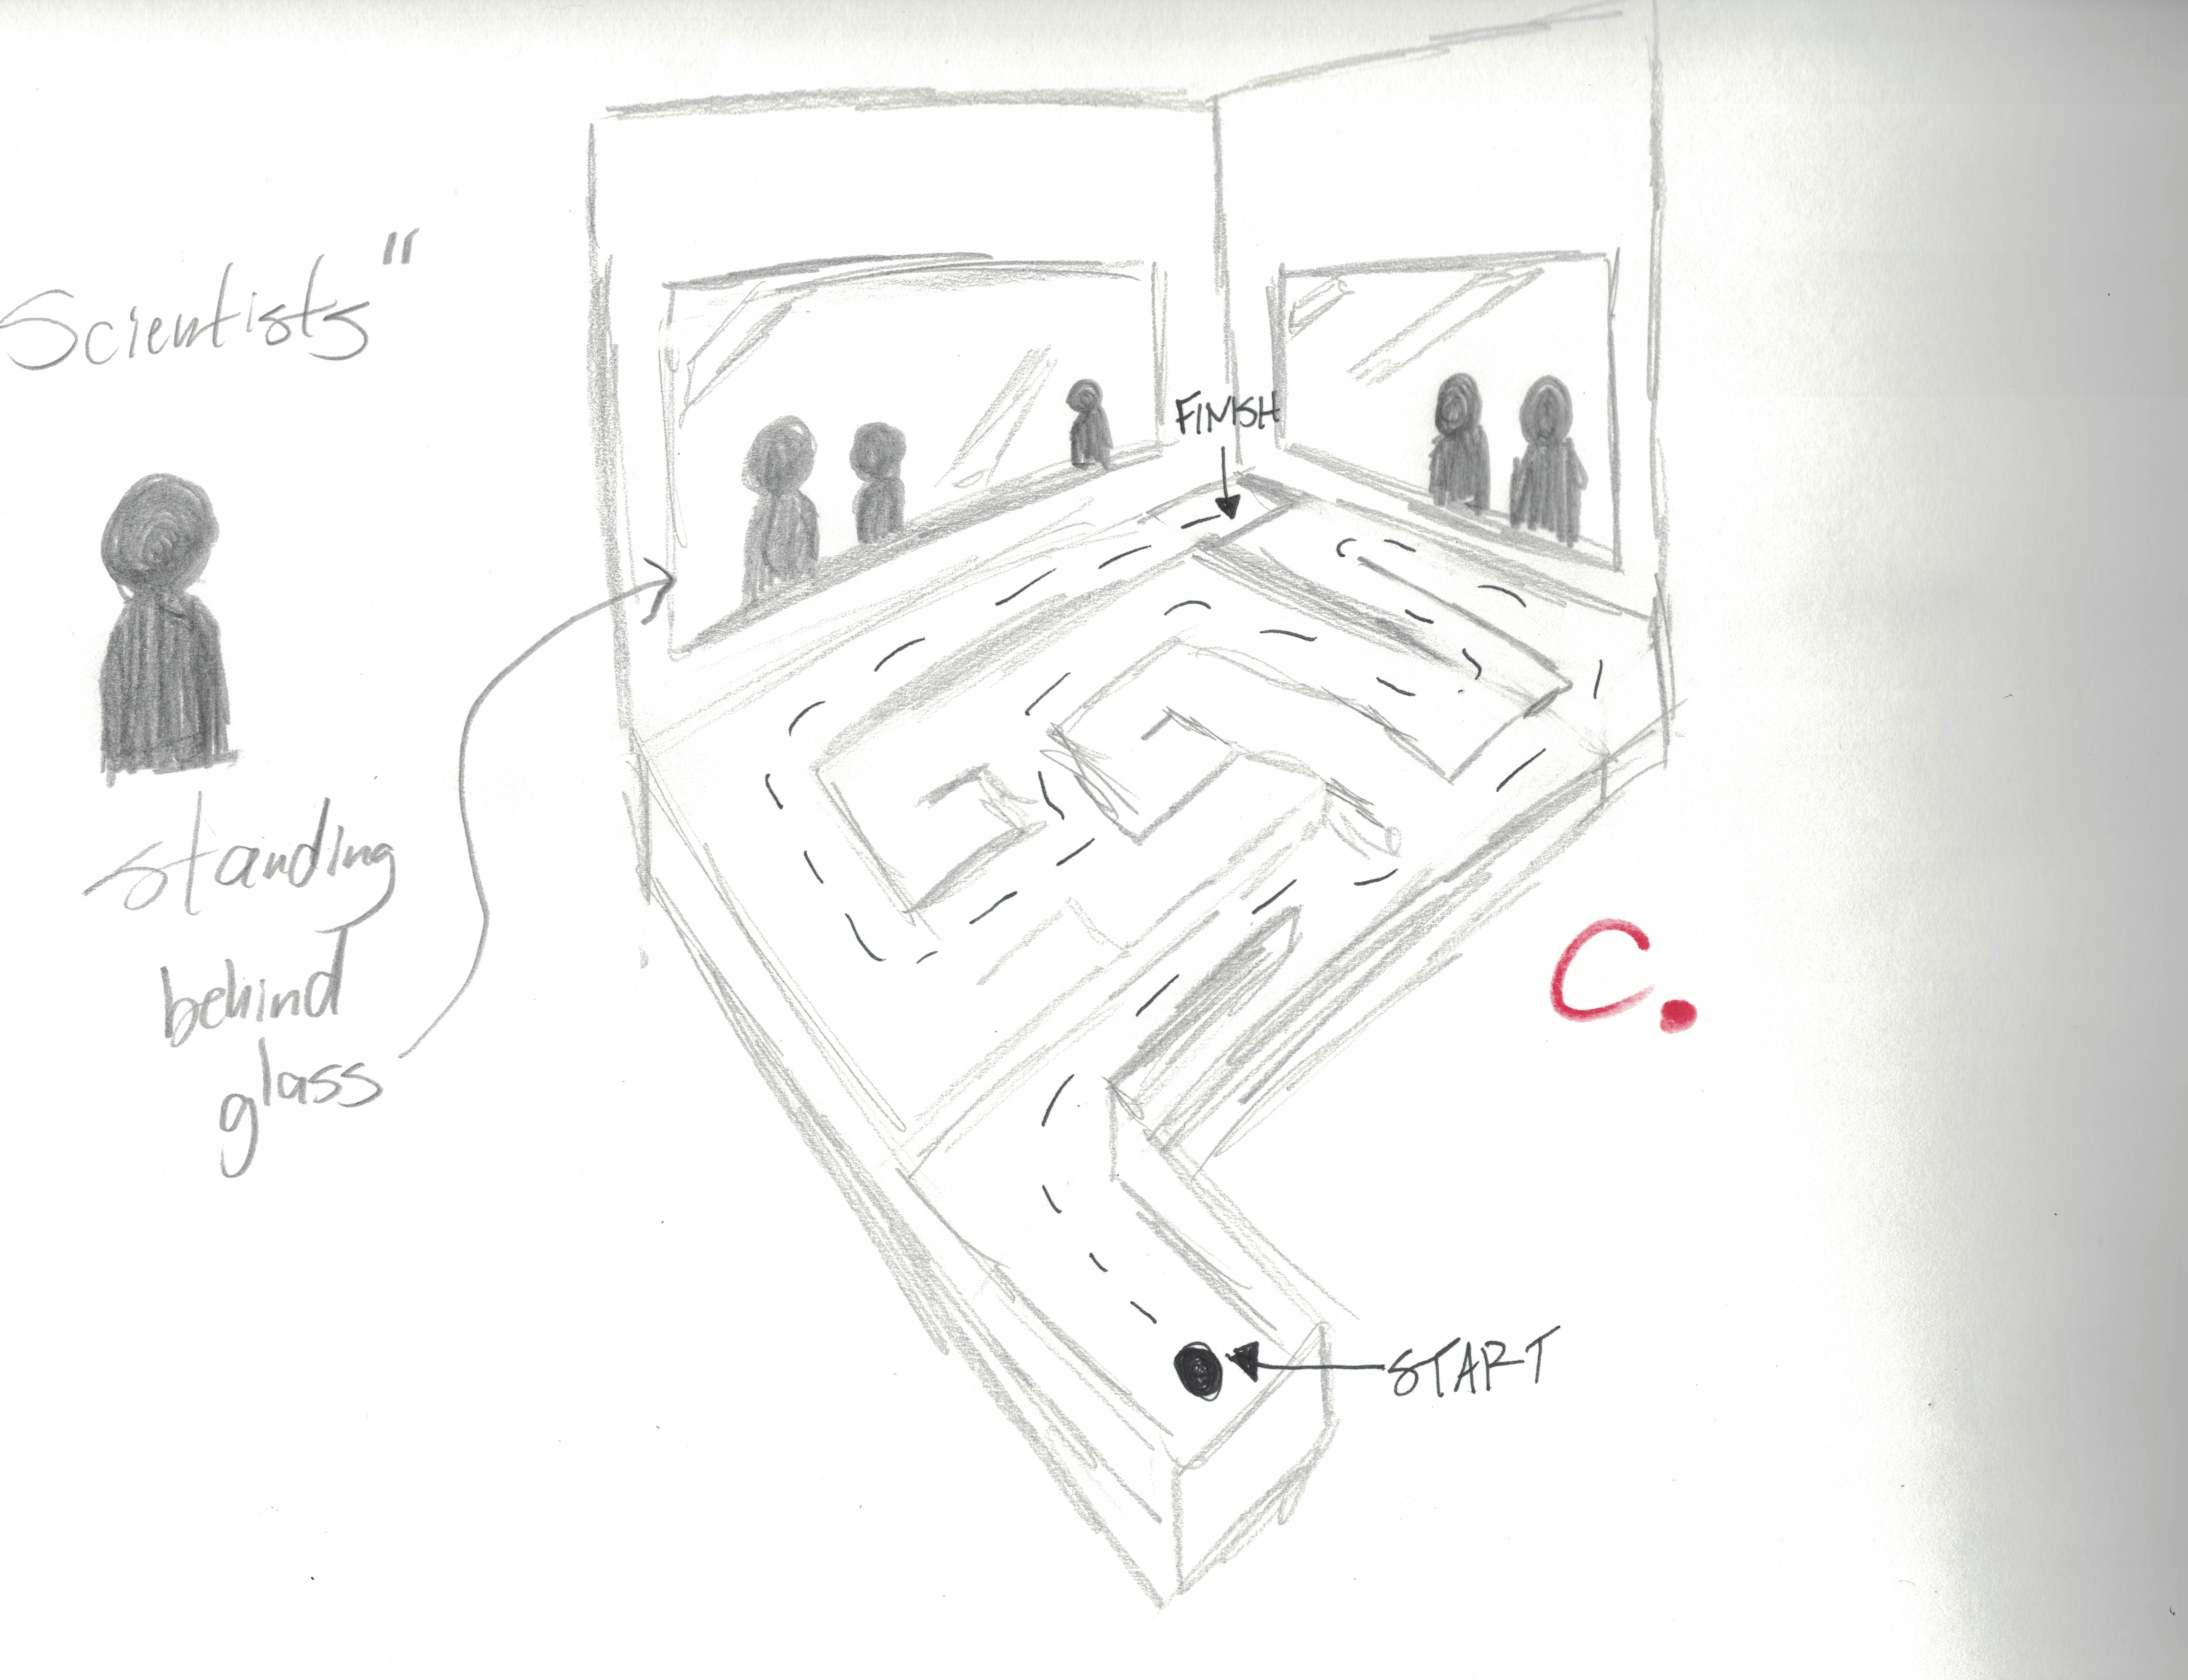 Scientists"
standing
behind
glass
FINISH
C.
START